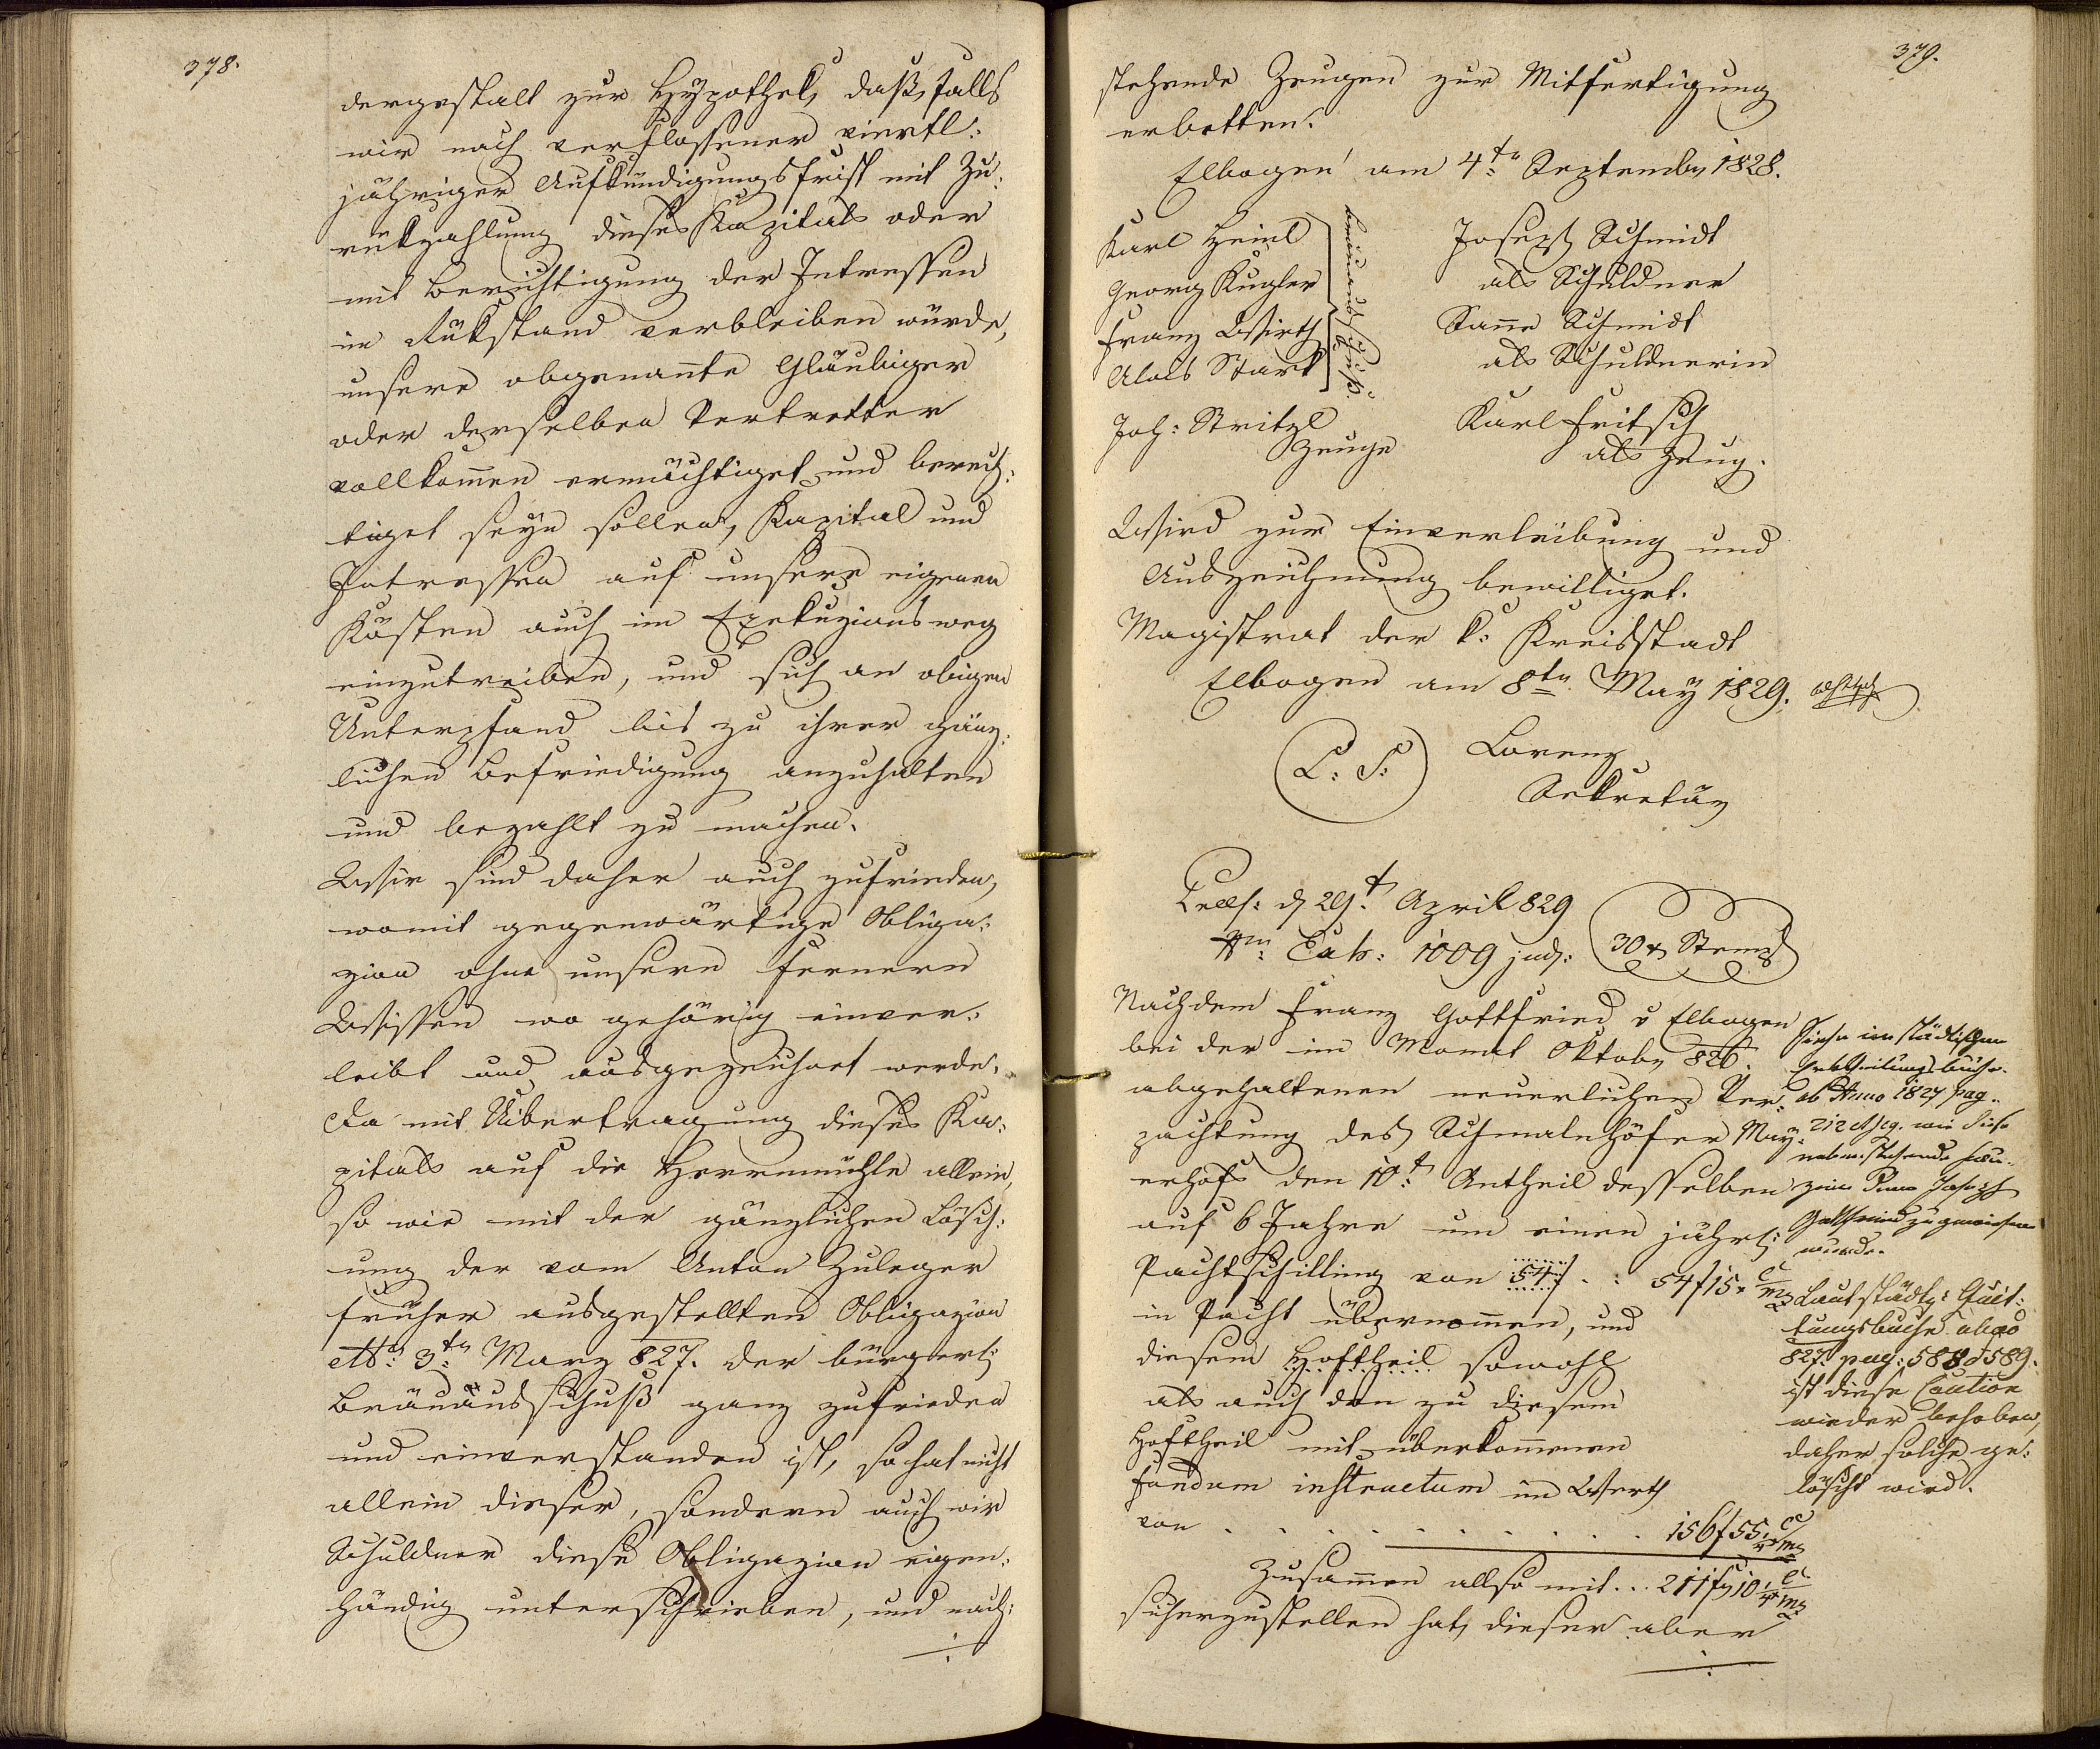 378.
dergestalt zur Hypothek, daß, falls
wir nach verflossener viertl:
jähriger Aufkündigungsfrist mit Zu:
rükzahlung dieses Kapitals oder
mit Berichtigung der Intressen
im Rükstand verbleiben würde,
unsere obgenañte Gläubiger
oder derselben Vertretter
vollkom̃en ermächtiget und berech:
tiget seyn sollen, Kapital und
Intressen auf unsere eigenen
Kösten auch im Exekuzionsweg
einzutreiben, und sich an obigen
Unterpfand bis zu ihrer gänz:
lichen Befriedigung anzuhalten
und bezahlt zu machen.
Wir sind daher auch zufrieden,
womit gegenwärtige Obliga:
zion ohne unsern fernern
Wissen wo gehörig einver:
leibt und ausgezeichnet werde.
Da mit Uibertragung dieses Ka:
pitals auf die Herrnmühle allein,
so wie mit der gänzlichen Lösch:
ung der vom Anton Zuleger
früher ausgestellten Obligazion
dto: 3ten März 827. der bürgerl:
Bräuausschuß ganz zufrieden
und einverstanden ist, so hat nicht
allein dieser, sondern auch wir
Schuldner diese Obligazion eigen:
händig unterschrieben, und nach:
379.
stehende Zeugen zur Mitfertigung
erbetten.
Elbogen am 4ten September 1828.
Karl Heinl
Georg Kugler
Franz Wirth
Alois Stark
bräuausschuß.
Joh: Stritzl
Zeuge
Joseph Schmidt
als Schuldner
Anna Schmidt
als Schuldnerin
Karl Fritsch
als Zeug.
Wird zur Einverleibung und
Auszeichnung bewilliget.
Magistrat der k: Kreisstadt
Elbogen am 8ten May 1829.
L: S:
Lorenz
Sekretär
Præs: d 29t April 829
Nro: Exh: 1009 jud:
30 x Stempl
Nachdem Franz Gottfried v Elbogen
bei der im Monat Oktober 826.
abgehaltenen neuerlichen Ver:
pachtung des Schmalnhöfer May:
erhofs den 10t Antheil desselben
auf 6 Jahre um einen jährl:
Pachtschilling von 54f . . 54f15x CMz
in Pacht übernom̃en, und
diesem Hoftheil sowohl
als auch den zu diesem
Hoftheil mit überkom̃enen
fundum instructum im Werth
von . . . . . . . . . . 156f55x CMz
Zusam̃en allso mit . . . 211f10x CMz
sicherzustellen hat, dieser aber
Siehe im städtischen
Erbtheilungsbuche
ab Anno 1827 pag.
212 et seq. wie diese
nebenstehende Kau:
zion dem Joseph
Gottfried zugewiesen
wurde.
Laut städt: Quit:
tungsbuche ab ao
827. pag: 588 & 589.
ist diese Caution
wieder behoben,
daher solche ge:
löscht wird.